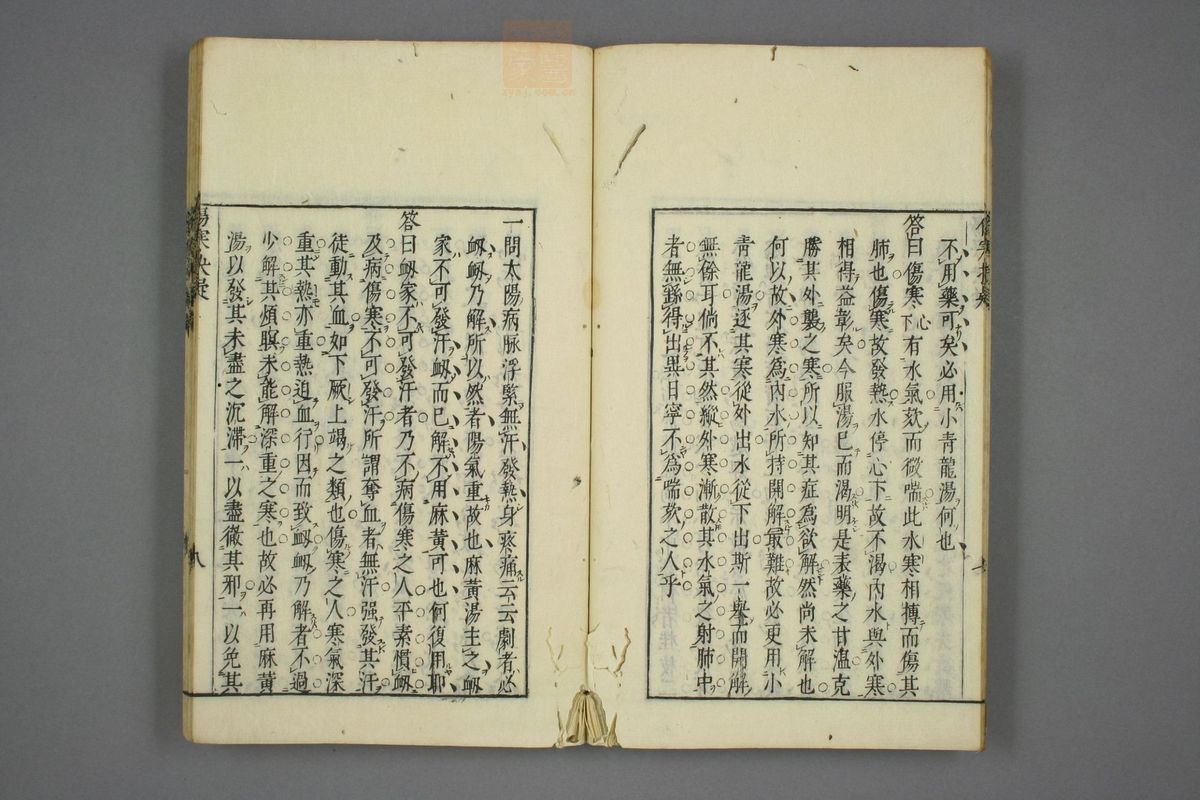 不用藥可矣必用小青龍湯何也
答曰傷寒心下有水氣欬而微喘此水寒相搏而傷其
肺也傷寒故發熱水停心下故不渴內水與外寒
相得益彰矣今服湯已而渴明是表藥之甘温克
勝其外襲之寒所以知其症爲欲解然尚未解也
何以故外寒爲內水所持開解最難故必更用小
青龍湯逐其寒從外出水從下出斯一舉而開解
無餘耳倘不其然縱外寒漸散其水氣之射肺中
者無繇得出異日寧不爲喘欬之人乎
七
一問太陽病脉浮緊無汗發熱身疼痛云云劇者必
衂衂乃解所以然者陽氣重故也麻黃湯主之衂
家不可發汗衂而已解不用麻黃可也何復用耶
答曰衂家不可發汗者乃不病傷寒之人平素慣衂
及病傷寒不可發汗所謂奪血者無汗强發其汗
徒動其血如下厥上竭之類也傷寒之人寒氣深
重其熱亦重熱迫血行因而致衂衂乃解者不過
少解其煩瞑未能解深重之寒也故必再用麻黃
湯以發其未盡之沉滯一以盡徹其邪一以免其
八